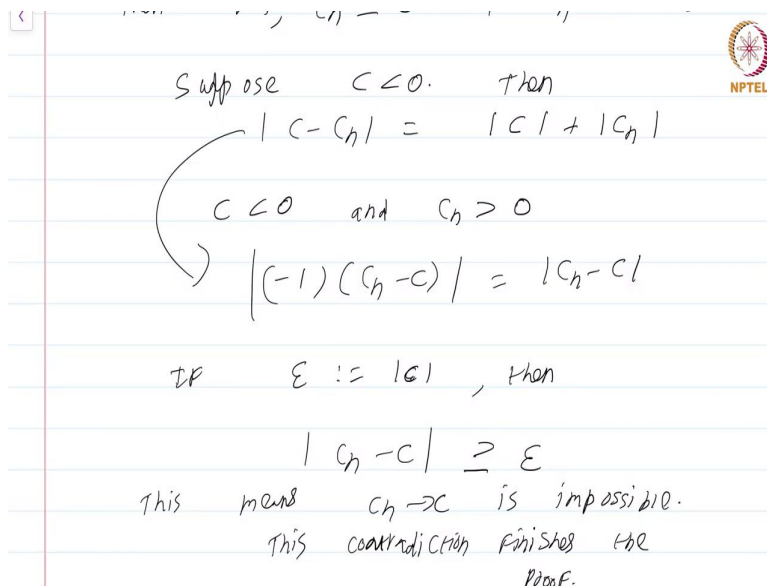 Suppose C<0. Then
NPTEL
|C-Cn| = |C| + |Cn|
C<0 and Cn>0
|(-1)(Cn-C)| = |Cn-C|
IF ε := |C|, then
|Cn-C| ≥ ε
This means Cn→C is impossible.
This contradiction finishes the
Proof.